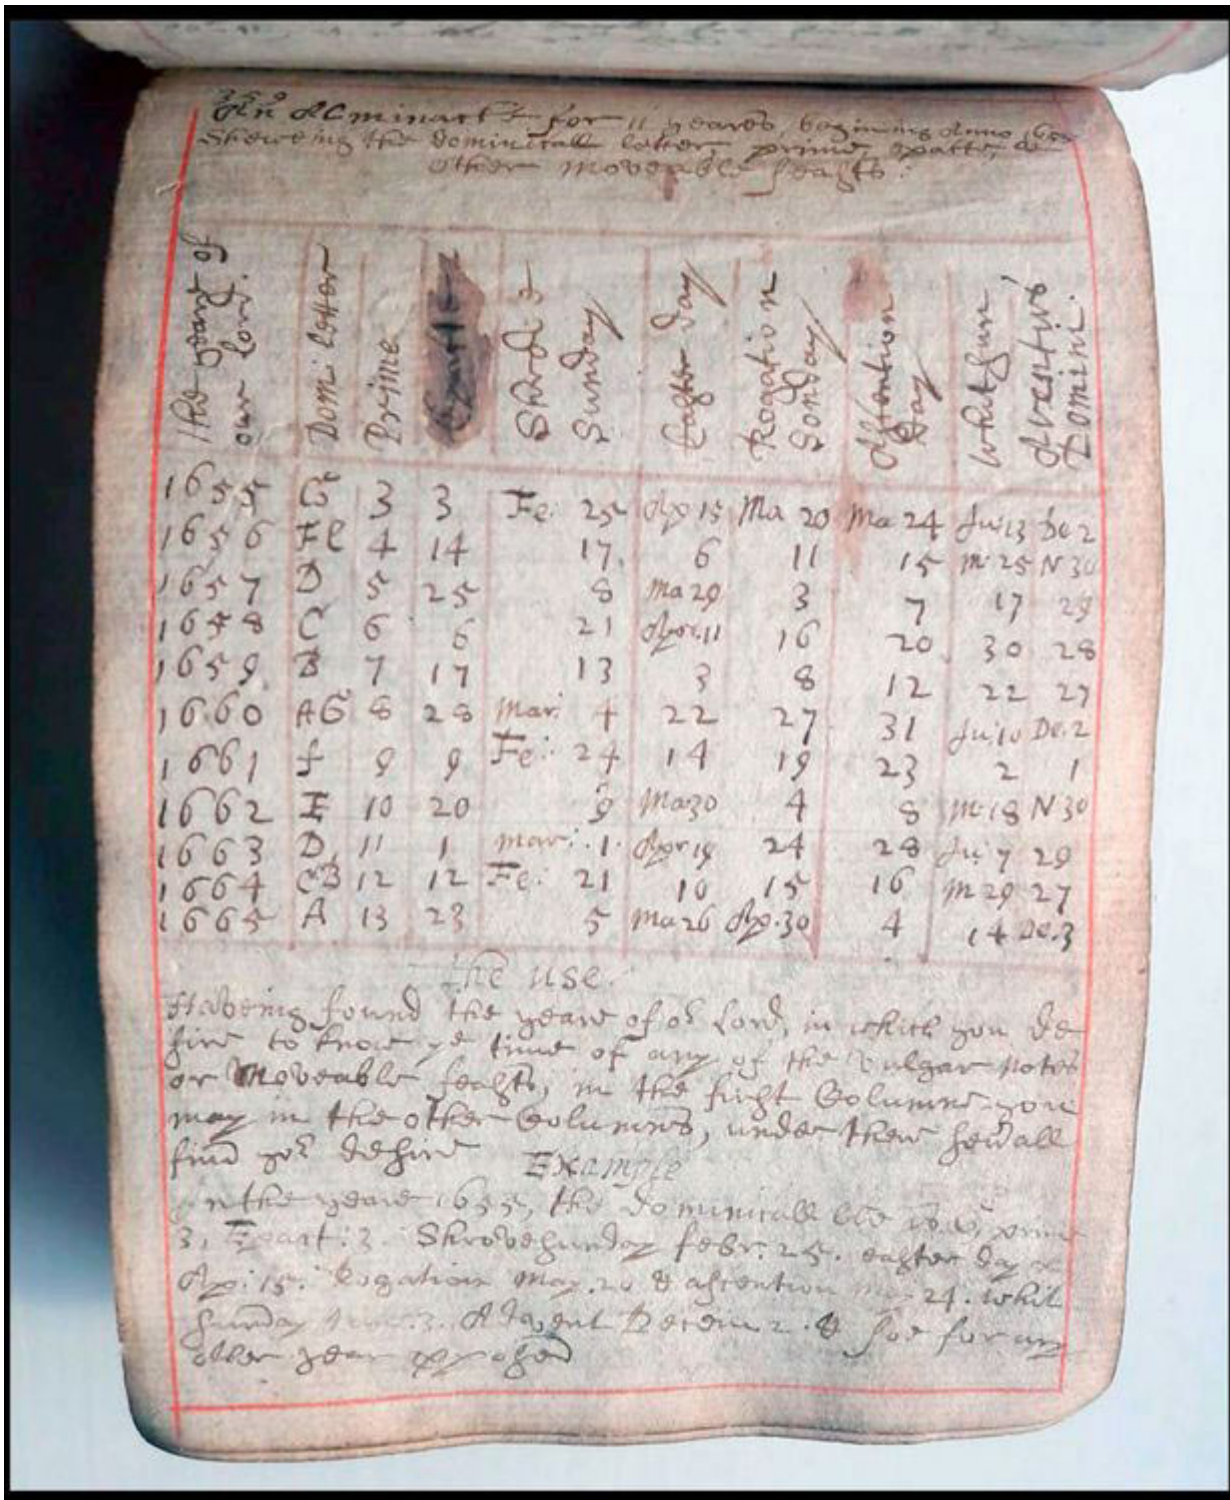 An Alminack for 11 yeares, begining Anno 1655
Sheweing the dominicall letter prime, epatte, &
other moveable feasts:
The yeare of our Lord.
Domi: letter
Prime
Epacte
Shroft Sunday
Easter day
Rogation Sonday
Assention day
Whitsun
Aventus Domini.
1655 G 3 3 Fe: 25 Ap 15 Ma 20 Ma 24 Ju: 3 De 2
1656 FE 4 14 17 6 11 15 M: 25 N 30
1657 D 5 25 8 Ma 29 3 7 17 29
1658 C 6 6 21 Apr: 11 16 20 30 28
1659 B 7 17 13 3 8 12 22 27
1660 AG 8 28 Mar: 4 22 27 31 Ju: 10 De. 2
1661 f 9 9 Fe: 24 14 19 23 2 1
1662 E 10 20 9 Ma 30 4 8 M: 18 N 30
1663 D 11 1 Mar: 1 Apr 19 24 28 Ju: 7 29
1664 CB 12 12 Fe: 21 10 15 16 M 29 27
1665 A 13 23 5 Ma 26 Ap. 30 4 14 De. 3
the use.
Haveing found the yeare of or Lord, in which you de
sire to know ye time of any of the vulgar notes
or Moveable feasts, in the first Columne you
may in the other Columns, under their head all
find yor desire
Example
In the yeare 1655, the dominicall is G, prime
3, Epact: 3. Shrovesunday febr: 25. easter day
Ap: 15. Rogation May. 20 & assention may 24. whit
sunday June. 3. Advent Decem 2. & soe for any
other year